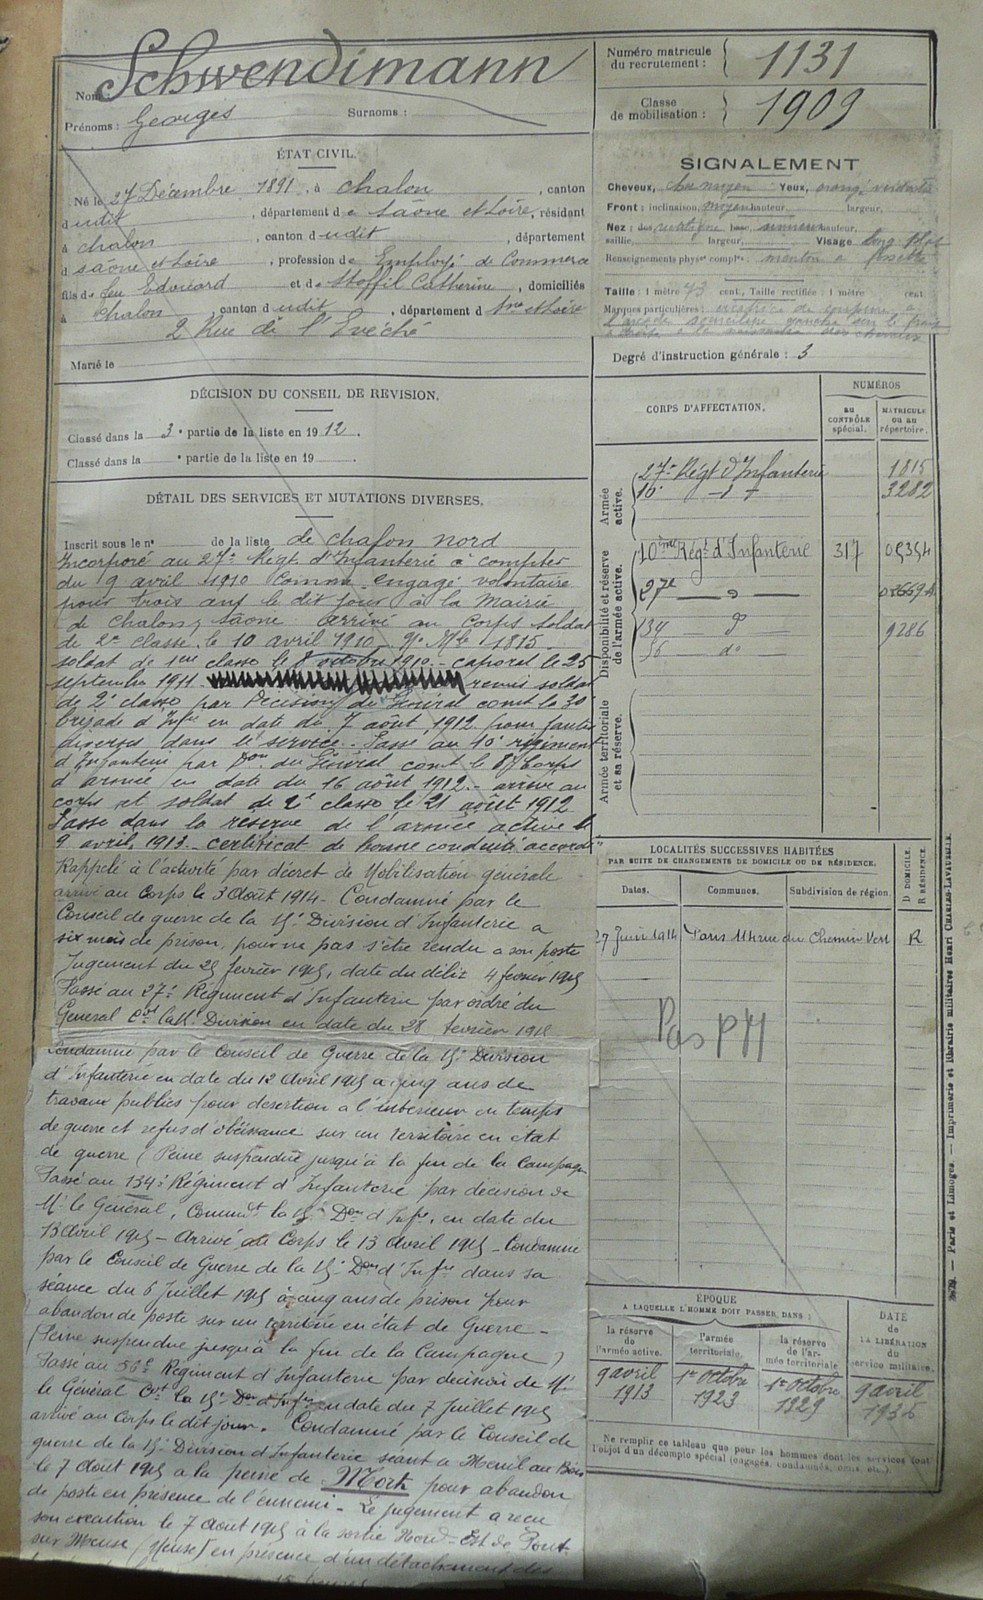 Nom : Schwendimann
Prénoms : Georges Surnoms :
Numéro matricule du recrutement : 1131
Classe de mobilisation : 1909
ÉTAT CIVIL.
Né le 27 Décembre 1891, à Chalon, canton
dudit, département de Saône et Loire, résidant
à Chalon, canton dudit, département
d Saône et Loire, profession de Employé de Commerce
fils de feu Edouard et de Stoffil Catherine, domiciliés
à Chalon canton dudit, département d Sne et Loire
2 Rue de l'Evêché
Marié le
SIGNALEMENT
Cheveux, moyen Yeux, orangé verdatre
Front : inclinaison, moyen hauteur, largeur,
Nez : dos, rectiligne base, hauteur,
saillie, largeur, Visage long
Renseignements physes complres : menton à fossette
Taille : 1 mètre 73 cent. Taille rectifiée : 1 mètre cent.
Marques particulières : cicatrice
l'arcade sourcilière gauche sur le front
à droite à la naissance des cheveux
Degré d'instruction générale : 3
DÉCISION DU CONSEIL DE REVISION.
Classé dans la 3e partie de la liste en 1912.
Classé dans la e partie de la liste en 19 .
DÉTAIL DES SERVICES ET MUTATIONS DIVERSES.
Inscrit sous le n° de la liste de chalon nord
Incorporé au 27e Régt d'Infanterie à compter
du 9 avril 1910 comme engagé volontaire
pour trois ans le dit jour à la Mairie
de Chalon s/ Saône arrivé au Corps soldat
de 2e classe le 10 avril 1910 No Mle 1815
soldat de 1ere classe le 8 octobre 1910 - caporal le 25
septembre 1911. remis soldat
de 2e classe par Décision du Général comt la 30
brigade d'Infie en date du 7 août 1912 pour fautes
diverses dans le service. Passé au 10e régiment
d'Infanterie par Don du Général comt le 8e Corps
d'armée en date du 16 août 1912 - arrivé au
corps et soldat de 2e classe le 21 août 1912
Passé dans la réserve de l'armée active le
9 avril 1913 - certificat de bonne conduite accordé
Rappelé à l'activité par décret de Mobilisation générale
arrivé au Corps le 3 Août 1914 - Condamné par le
Conseil de guerre de la 15e Division d'Infanterie a
six mois de prison, pour ne pas s'être rendu a son poste
Jugement du 25 février 1915, date du délit 4 février 1915
Passé au 27e Régiment d'Infanterie par ordre du
Général Ct la 15e Division en date du 28 février 1915
Condamné par le Conseil de Guerre de la 15e Division
d'Infanterie en date du 12 Avril 1915 à cinq ans de
travaux publics pour desertion a l'intérieur en temps
de guerre et refus d'obéissance sur un territoire en état
de guerre (Peine suspendue jusqu'à la fin de la Campagne
Passé au 134e Régiment d'Infanterie par décision de
Mr le Général, Commdt la 15e Don d'Infie, en date du
13 Avril 1915 - Arrivé au Corps le 13 Avril 1915 - Condamné
par le Conseil de Guerre de la 15e Don d'Infie dans sa
séance du 6 Juillet 1915 à cinq ans de prison pour
abandon de poste sur un territoire en état de Guerre -
(Peine suspendue jusqu'à la fin de la Campagne)
Passé au 56e Régiment d'Infanterie par décision de Mr
le Général Ct la 15e Don d'Infie en date du 7 Juillet 1915
arrivé au Corps le dit jour. Condamné par le Conseil de
guerre de la 15e Division d'Infanterie séant à Menil au Bois
le 7 Août 1915 à la peine de Mort pour abandon
de poste en présence de l'ennemi - Le jugement a reçu
son execution le 7 Août 1915 à la sortie Nord-Est de Pont
sur Meuse (Meuse) en présence d'un détachement des
CORPS D'AFFECTATION.
NUMÉROS
AU CONTRÔLE spécial.
MATRICULE OU AU répertoire.
Armée active.
27e Régt d'Infanterie 1815
10e 3282
Disponibilité et réserve de l'armée active.
10eme Régt d'Infanterie 317 05354
27e
134 9286
56 do
Armée territoriale et sa réserve.
LOCALITÉS SUCCESSIVES HABITÉES
PAR SUITE DE CHANGEMENTS DE DOMICILE OU DE RÉSIDENCE.
D DOMICILE. R RÉSIDENCE.
Dates. Communes. Subdivision de région.
27 Juin 1914 Paris 114 rue du Chemin Vert R
Pas
ÉPOQUE
A LAQUELLE L'HOMME DOIT PASSER DANS :
DATE de LA LIBÉRATION du service militaire.
la réserve de l'armée active.
l'armée territoriale.
la réserve de l'armée territoriale
9 avril 1913
1er Octobre 1923
1er Octobre 1929
9 avril 1935
Ne remplir ce tableau que pour les hommes dont les services font
l'objet d'un décompte spécial (engagés, condamnés, omis, etc.).
Paris et Limoges. — Imprimerie et librairie militaires Henri CHARLES-LAVAUZELLE.